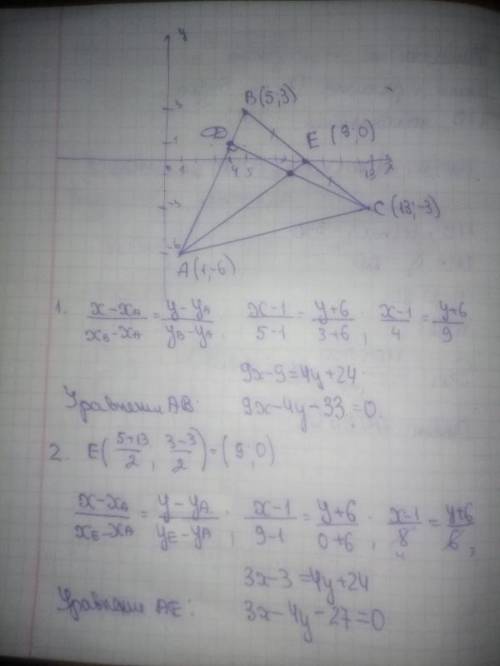 y
B(5;3)
3
D
E (9;0)
1
0 1 4 5 13 x
-3
C (13;-3)
-6
A(1;-6)
1. x-xA/xB-xA = y-yA/yB-yA, x-1/5-1 = y+6/3+6, x-1/4 = y+6/9
9x-9=4y+24
Уравнение AB: 9x-4y-33=0
2. E(5+13/2, 3-3/2)=(9;0)
x-xA/xE-xA = y-yA/yE-yA; x-1/9-1 = y+6/0+6; x-1/8 = y+6/6,
4
3x-3=4y+24
Уравнение AE: 3x-4y-27=0